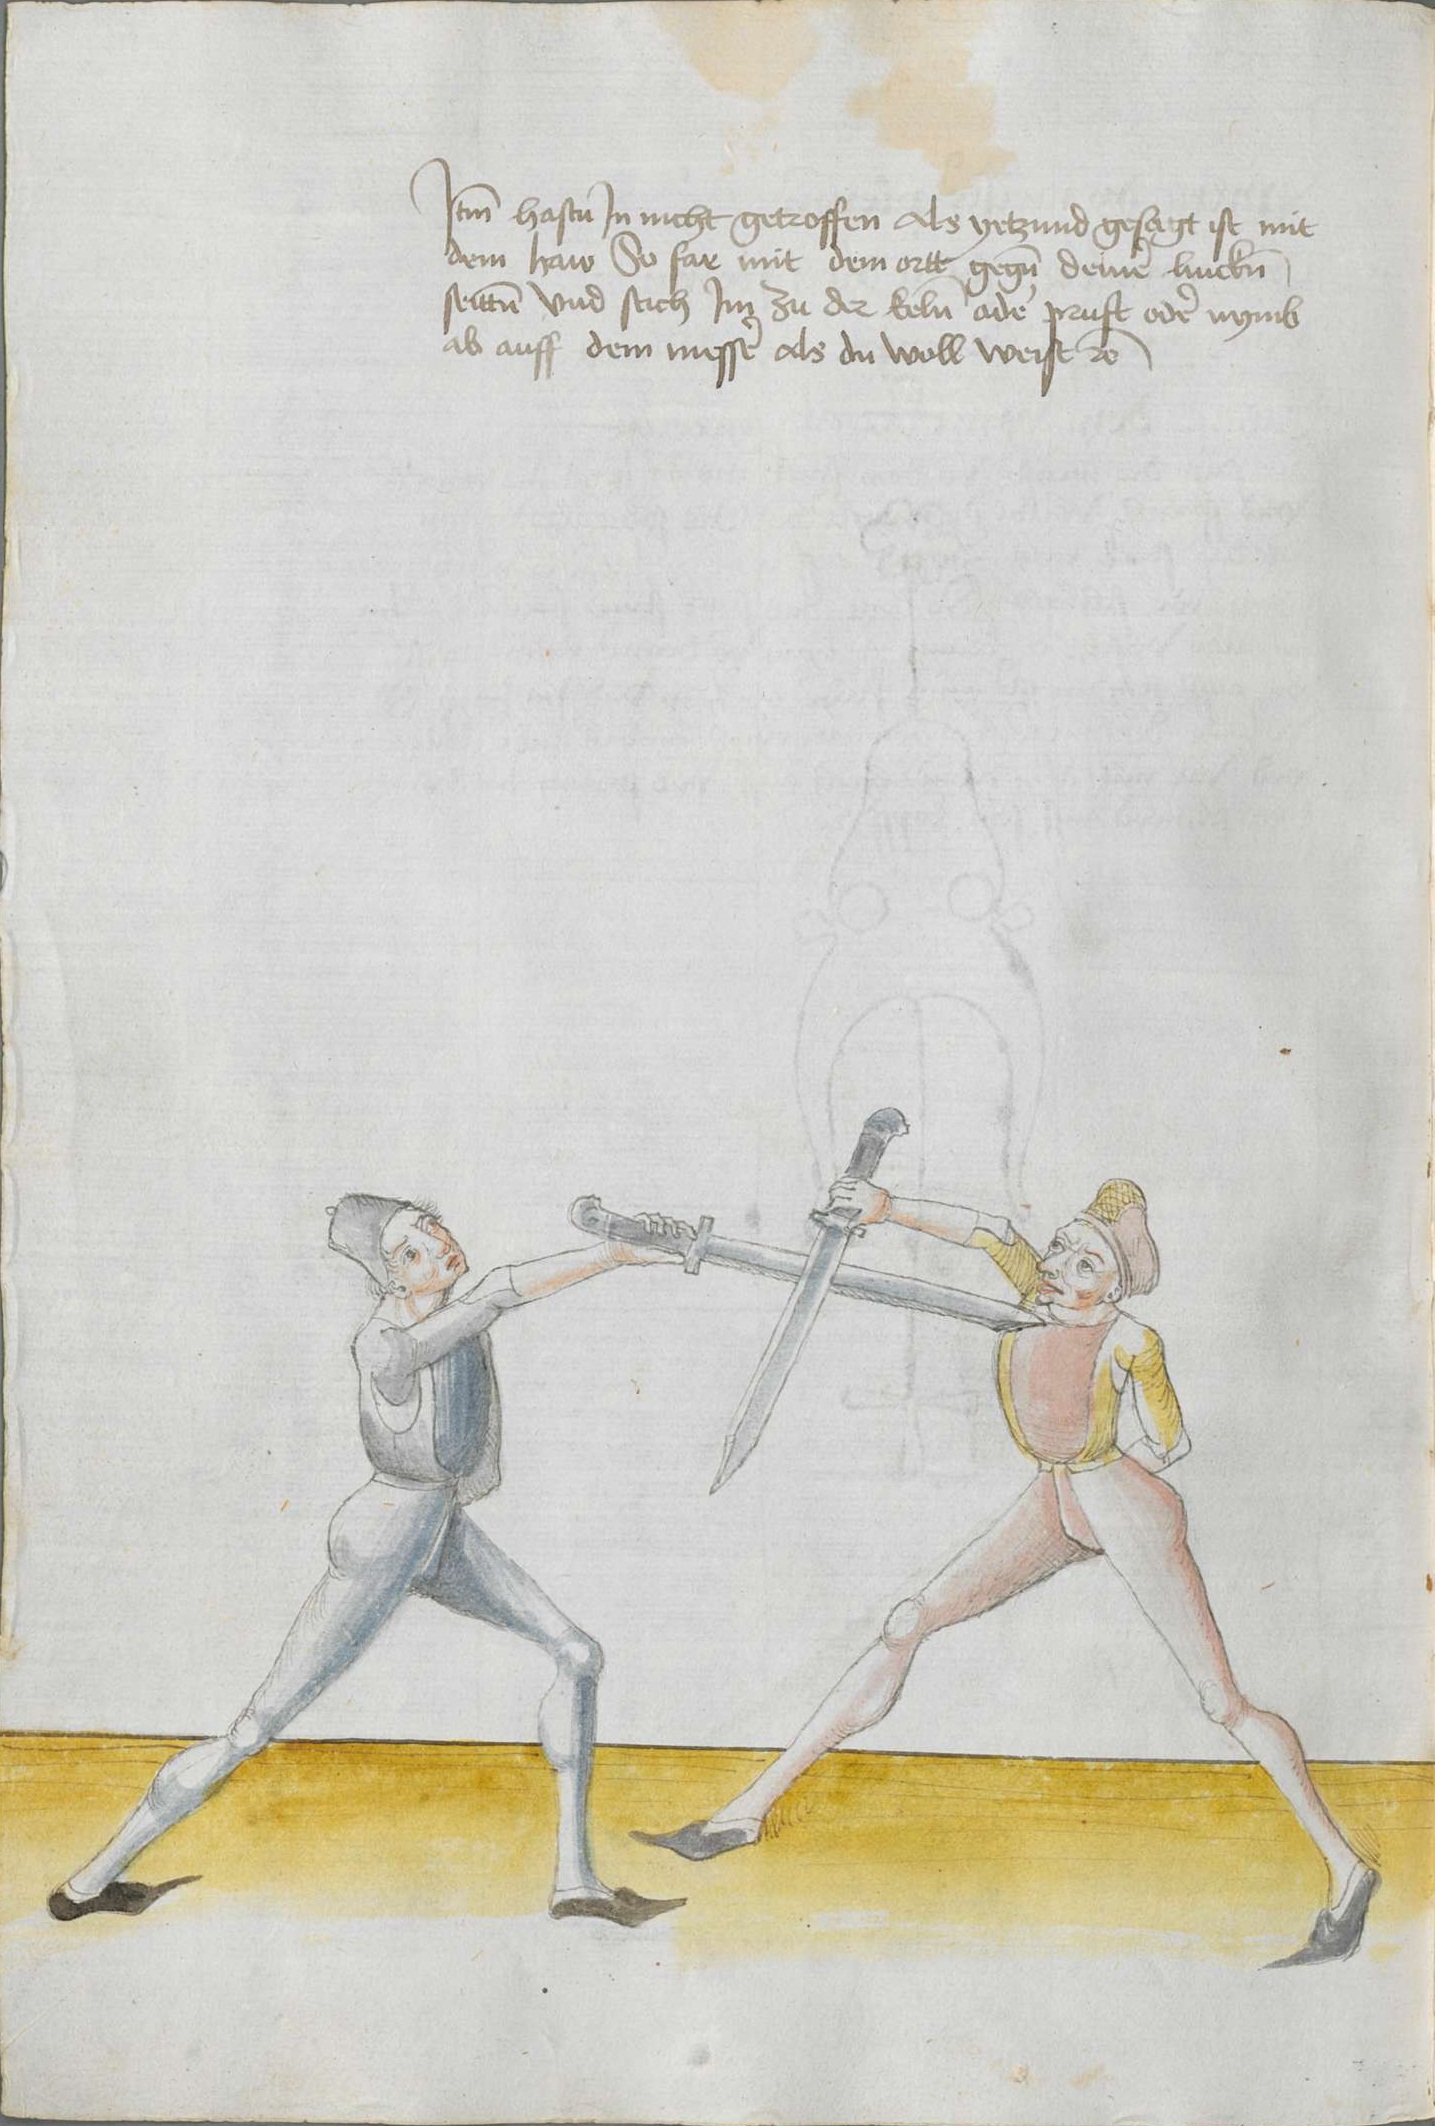 Itm̄ hastu In nicht getroffen als yetzund gesagt ist mit
dem haw So far mit dem ortt gegn̄ deine͛ linckn̄
seittn̄ Vnd stich Im Zu der keln̄ ade͛ prust ode͛ nymb
ab auff dem messe͛ als du woll weist ⁊c̄